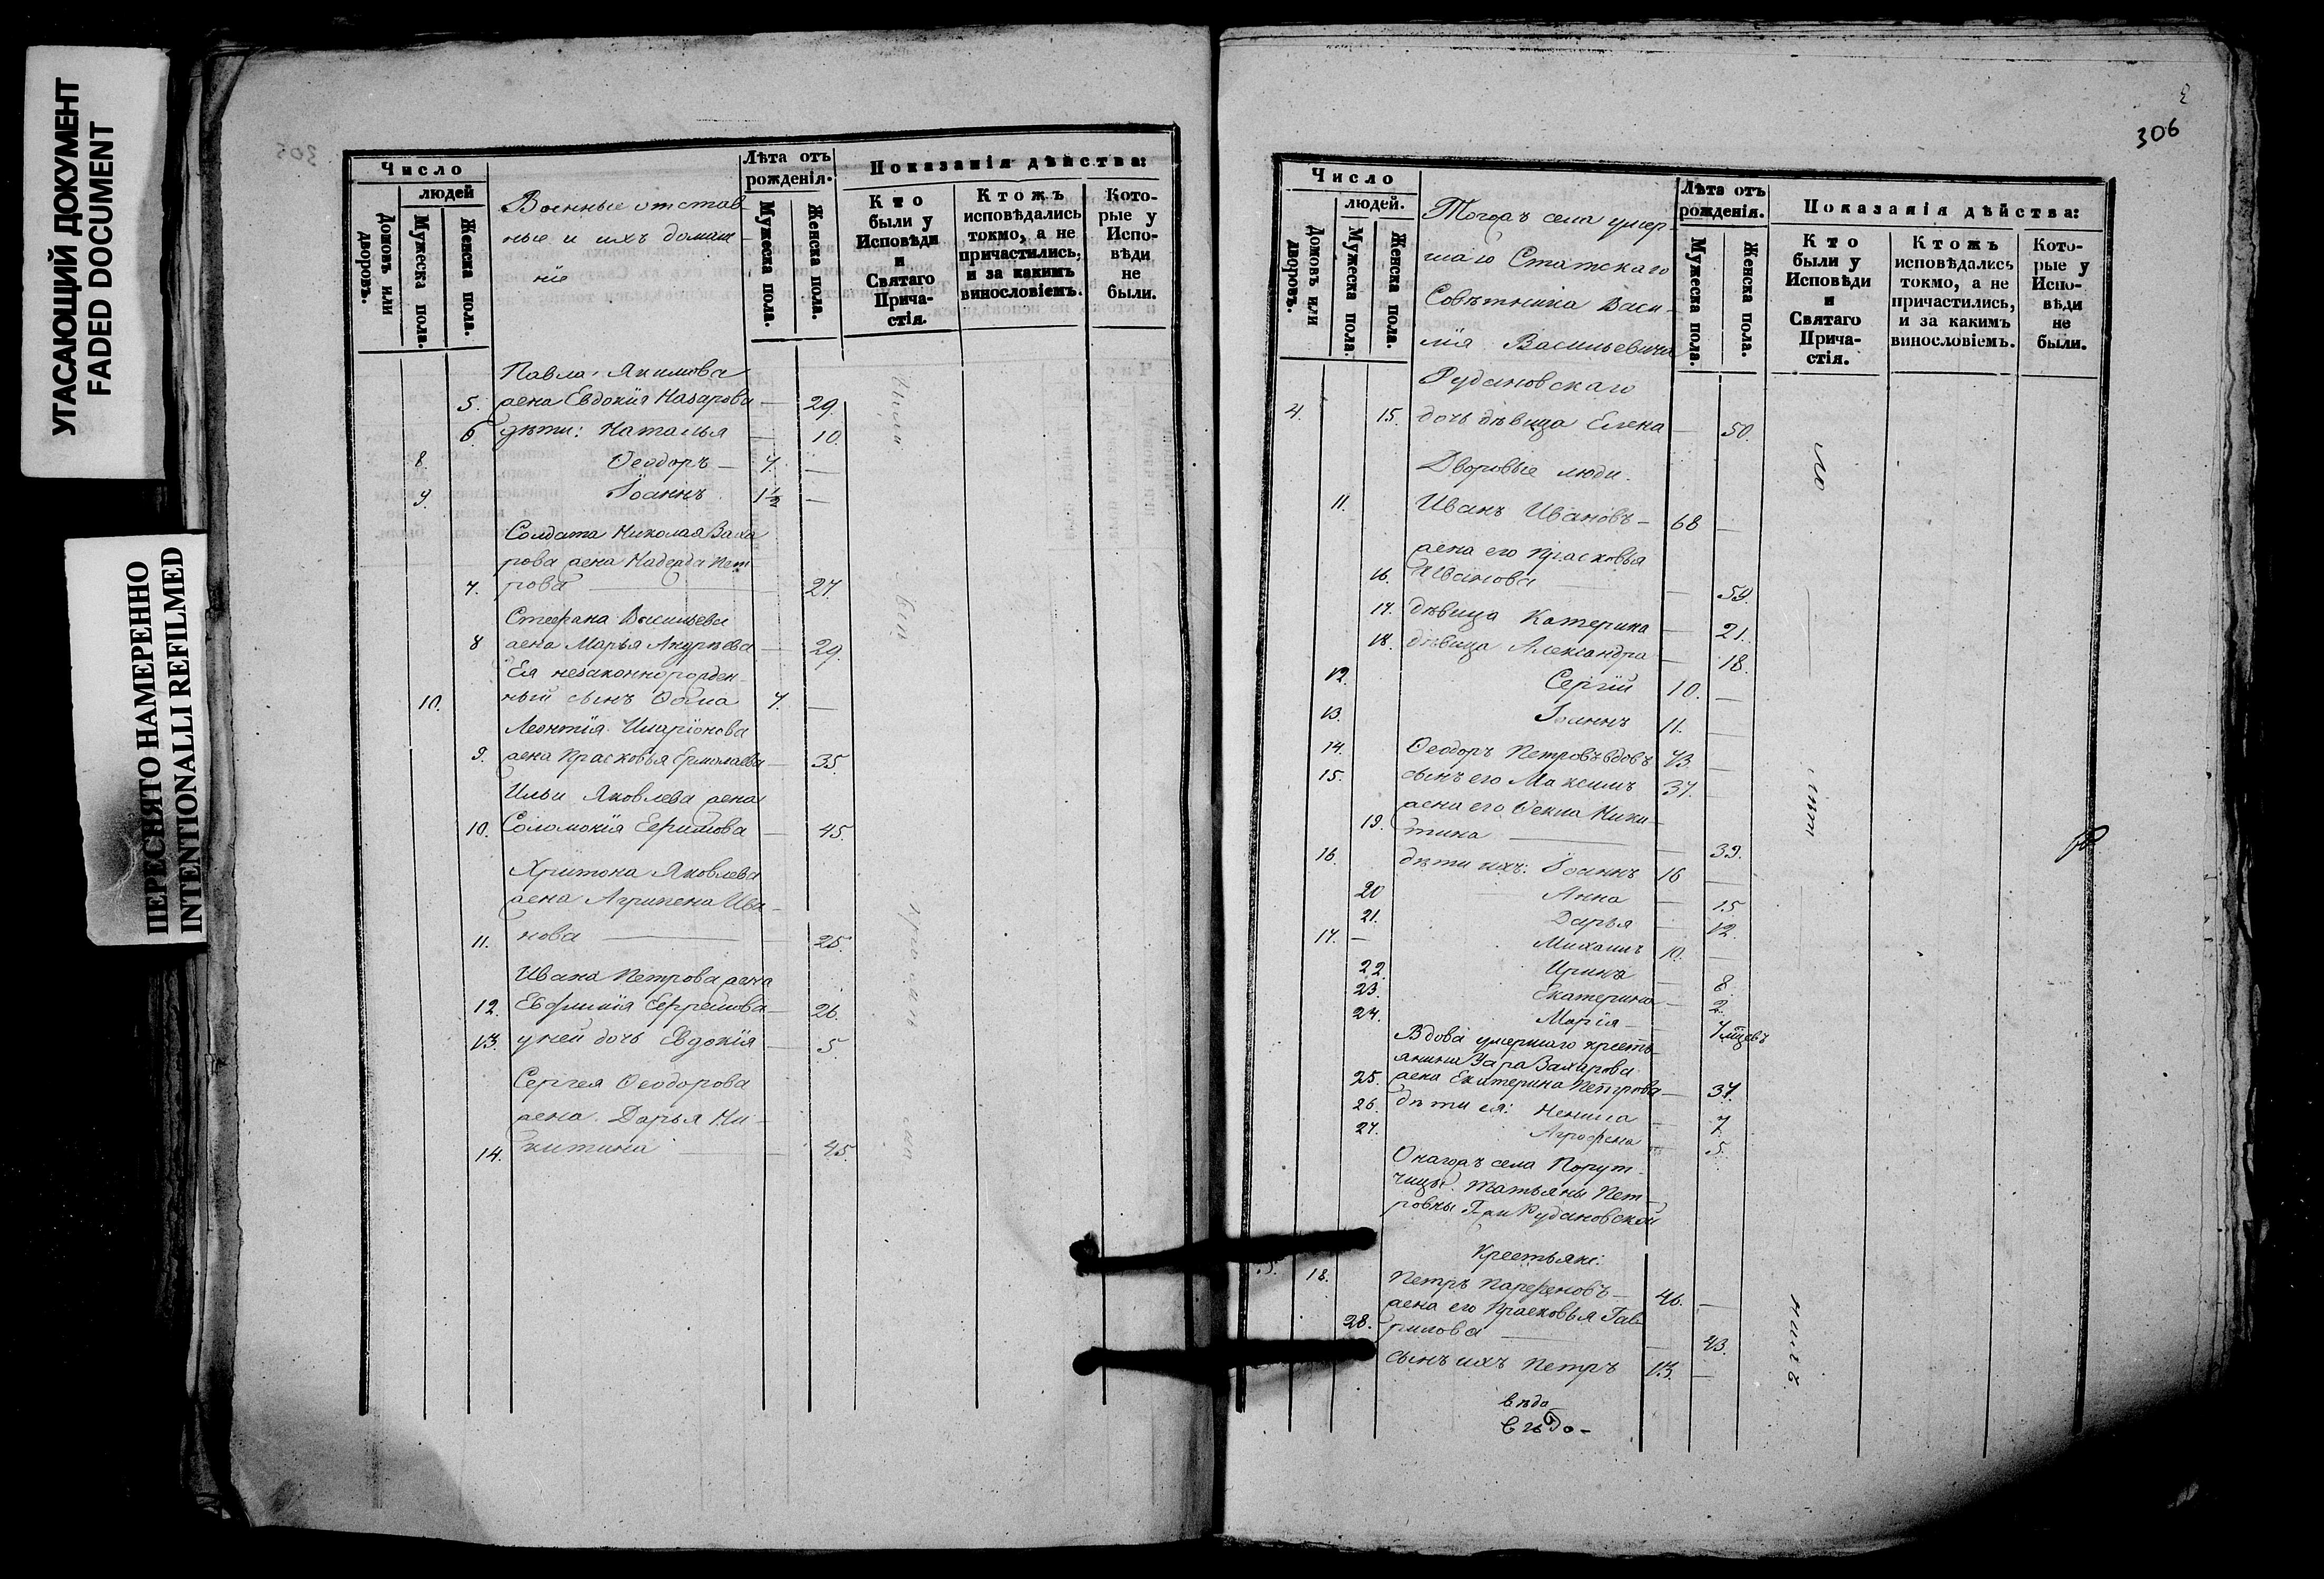 УГАСАЮЩИЙ ДОКУМЕНТ
FADED DOCUMENT
ПЕРЕСНЯТО НАМЕРЕННО
INTENTIONALLI REFILMED
Число
людей
Домовъ или дворовъ.
Мужеска пола.
Женска пола.
Военные отстав-
ные и ихъ домаш-
ніе
Лѣта отъ рожденія.
Мужеска пола.
Женска пола.
Показанія дѣйства:
Кто были у Исповѣди и Святаго Прича-стія.
Ктожъ исповѣдались токмо, а не причастились, и за какимъ винословіемъ.
Кото-рые у Испо-вѣди не были.
Павла Якимова
5. жена Евдокія Назарова — 29.
6 дѣти: Наталья — 10.
8. Ѳеодоръ — 7. —
9. Іоаннъ 1½ —
Солдата Николая Заха
рова жена Надежда Пет
7. рова — 27.
Стефана Васильева
8 жена Марья Андрѣева — 29.
Ея незаконнорожден-
10. ный сынъ Ѳома 7. —
Леонтія Иларіонова
9. жена Прасковья Ермолаева — 35.
Ильи Яковлева жена
10. Соломонія Ефимова — 45.
Харитона Яковлева
жена Агрипена Ива-
11. нова — 25.
Ивана Петрова жена
12. Евфимія Ефремова — 26.
13. у ней дочь Евдокія — 5.
Сергея Ѳеодорова
жена Дарья Ни-
14. китина — 45.
306
Число
людей.
Домовъ или дворовъ.
Мужеска пола.
Женска пола.
Тогожъ села умер-
шаго Статскаго
Совѣтника Васи-
лія Васильевича
Рудановскаго
Лѣта отъ рожденія.
Мужеска пола.
Женска пола.
Показанія дѣйства:
Кто были у Исповѣди и Святаго Прича-стія.
Ктожъ исповѣдались токмо, а не причастились, и за какимъ винословіемъ.
Кото-рые у Испо-вѣди не были.
4. 15. дочь дѣвица Елена — 50.
Дворовые люди.
11. Иванъ Ивановъ — 68 —
жена его Прасковья
16. Иванова — 59.
17. дѣвица Катерина — 21.
18. дѣвица Александра — 18.
12. Сергій 10. —
13. Іоаннъ 11. —
14. Ѳеодоръ Петровъ вдовъ 73. —
15. сынъ его Максимъ 37. —
жена его Ѳекла Ники-
19. тина — 39.
16. дѣти ихъ: Іоаннъ 16 —
20 Анна — 15
21. Дарья — 12.
17. — Михаилъ 10. —
22. Ирина — 8.
23. Екатерина — 2.
24. Марія — 7 мцевъ
Вдова умершаго кресть-
янина Уара Захарова
25. жена Екатерина Петрова — 37.
26. дѣти ея: Ненила — 7.
27. Агрофена 5.
Онагожъ села Порут-
чицы Татьяны Пет-
ровны Рудановской
Крестьяне:
5. 18. Петръ Парфеновъ — 46. —
жена его Прасковья Гав-
28. рилова — 43.
сынъ ихъ Петръ 13. —
вѣдо